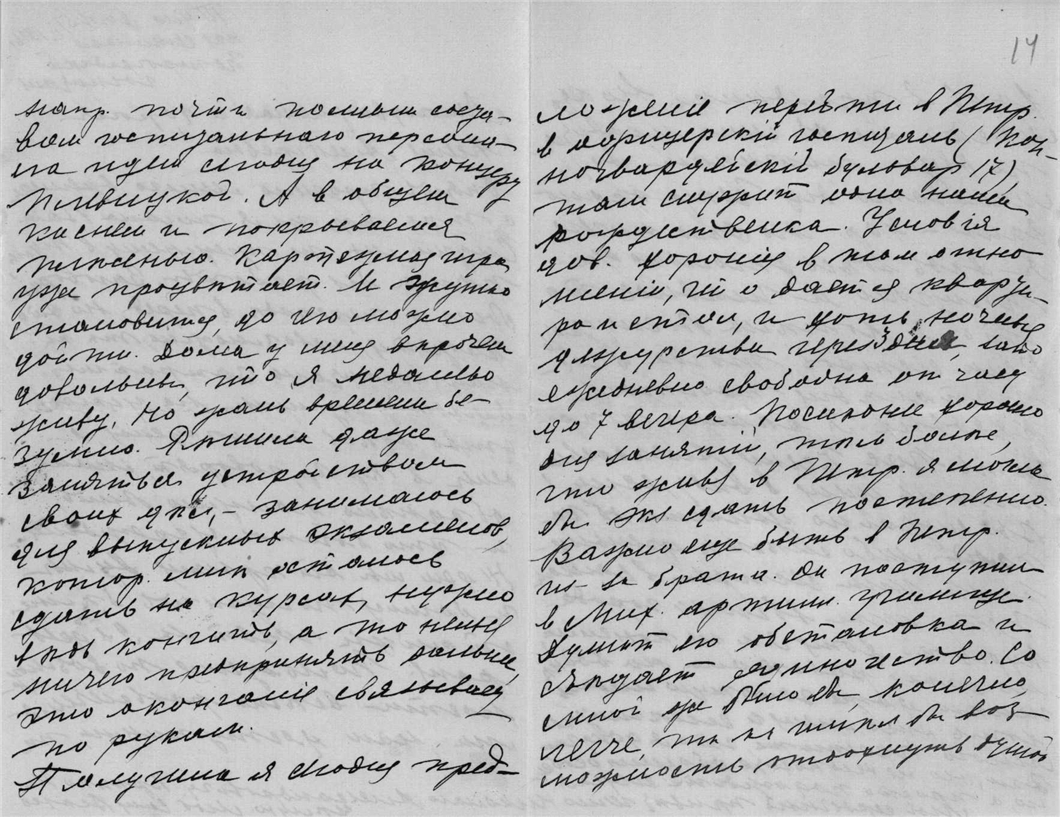 14
напр. почти полным соста-
вом госпитальнаго персона-
ла идем сегодня на концерт
Плевицкой. А в общем
киснем и покрываемся
плесенью. Картежная игра
уже процветает. И жутко
становится, до чего можно
дойти. Дома у меня впрочем
довольны, что я недалеко
живу. Но жаль времени бе-
зумно. Решила даже
заняться устройством
своих дел, – занимаюсь
для выпускных экзаменов,
котор. мне осталось
сдать на курсах, нужно
ведь кончить, а то нельзя
ничего предпринять дальше,
это окончаніе связывает
по рукам.
Получила я сегодня пред-
ложеніе перейти в Петр.
в офицерскій госпиталь (Кон-
ногвардейскій бульвар 17)
там служит одна наша
рождественка. Условія
дов. хорошія в том отно-
шеніи, что дается кварти-
ра и стол, и хоть ночныя
дежурства через день, зато
ежедневно свободна от часу
до 7 вечера. Последнее хорошо
для занятій, тем более,
что живя в Петр. я могла
бы экз сдать постепенно.
Важно еще быть в Петр.
из за брата. Он поступил
в Мих. артилл. училище.
Душит его обстановка и
съедает одиночество. Со
мной же было бы, конечно,
легче, т. к. имел бы воз
можность отдохнуть душой